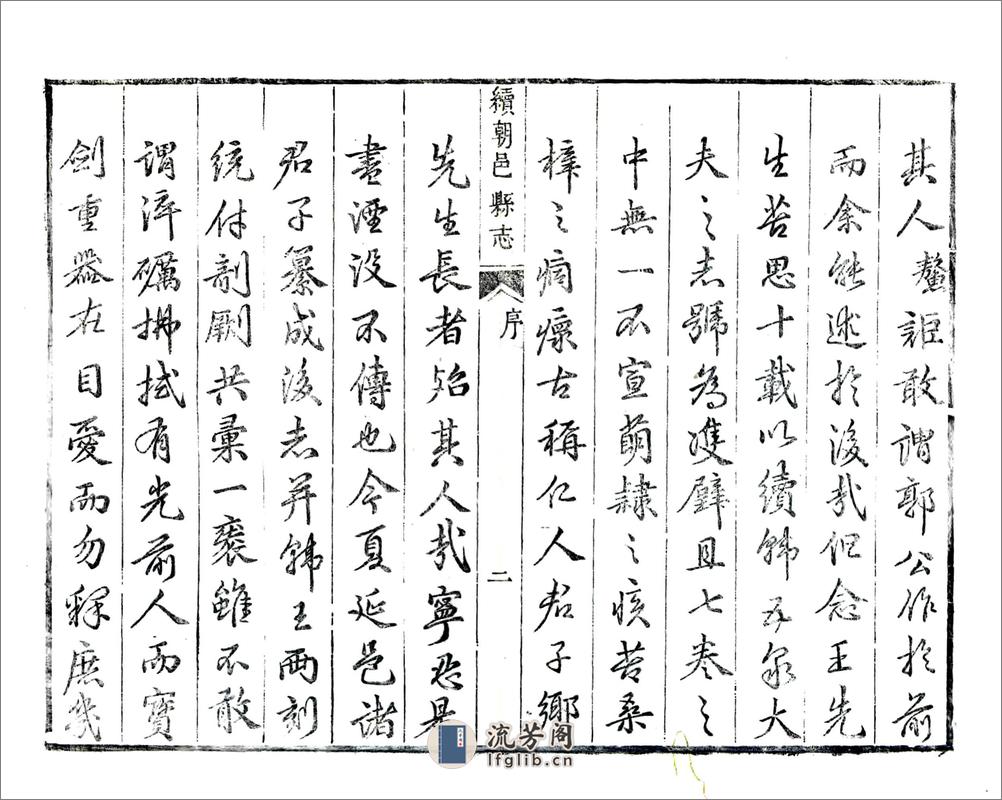 其人鼇詎敢謂郭公作於前
而余能述於後哉但念王先
生苦思十載以續韓五泉大
夫之志號為雙璧且七卷之
中無一不宣萌隸之疾苦桑
梓之痌瘝古稱仁人君子鄉
續朝邑縣志
序
二
先生長者殆其人哉寧忍是
書湮没不傳也今夏延邑諸
君子纂成後志并韓王両刻
統付剞劂共彙一袠雖不敢
謂淬礪拂拭有光前人而寶
劍重器在目愛而勿釋庶幾
流芳阁
lfglib.cn